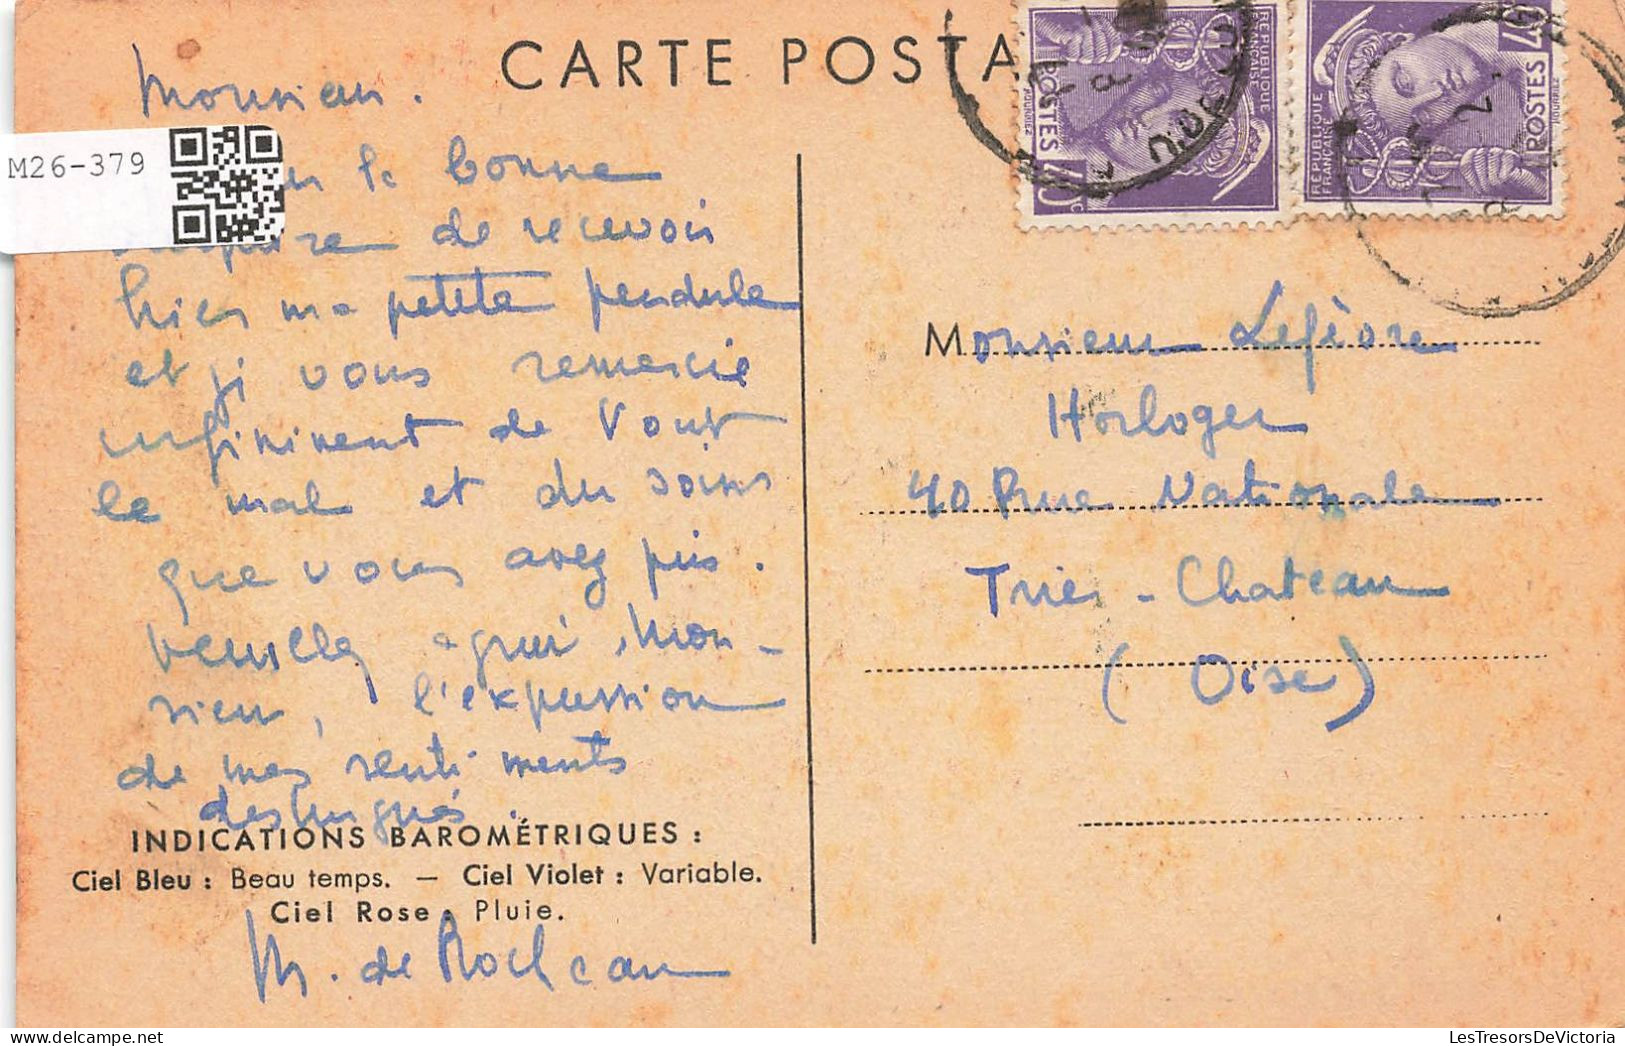 CARTE POSTA
M26-379
RÉPUBLIQUE FRANÇAISE
POSTES
40c
RÉPUBLIQUE FRANÇAISE
POSTES
Monsieur.
la bonne
surprise de recevoir
hier ma petite pendule
et je vous remercie
infiniment de tout
le mal et du soins
que vous avez pris.
Veuillez agréer, Mon-
sieur, l'expression
de mes sentiments
distingués.
M. de Rocheau
INDICATIONS BAROMÉTRIQUES :
Ciel Bleu : Beau temps. — Ciel Violet : Variable.
Ciel Rose : Pluie.
Monsieur Lefèvre
Horloger
40 Rue Nationale
Trie - Chateau
(Oise)
LesTresorsDeVictoria